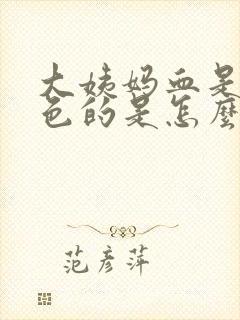 大姨妈血是
色的是怎麽
范彦萍